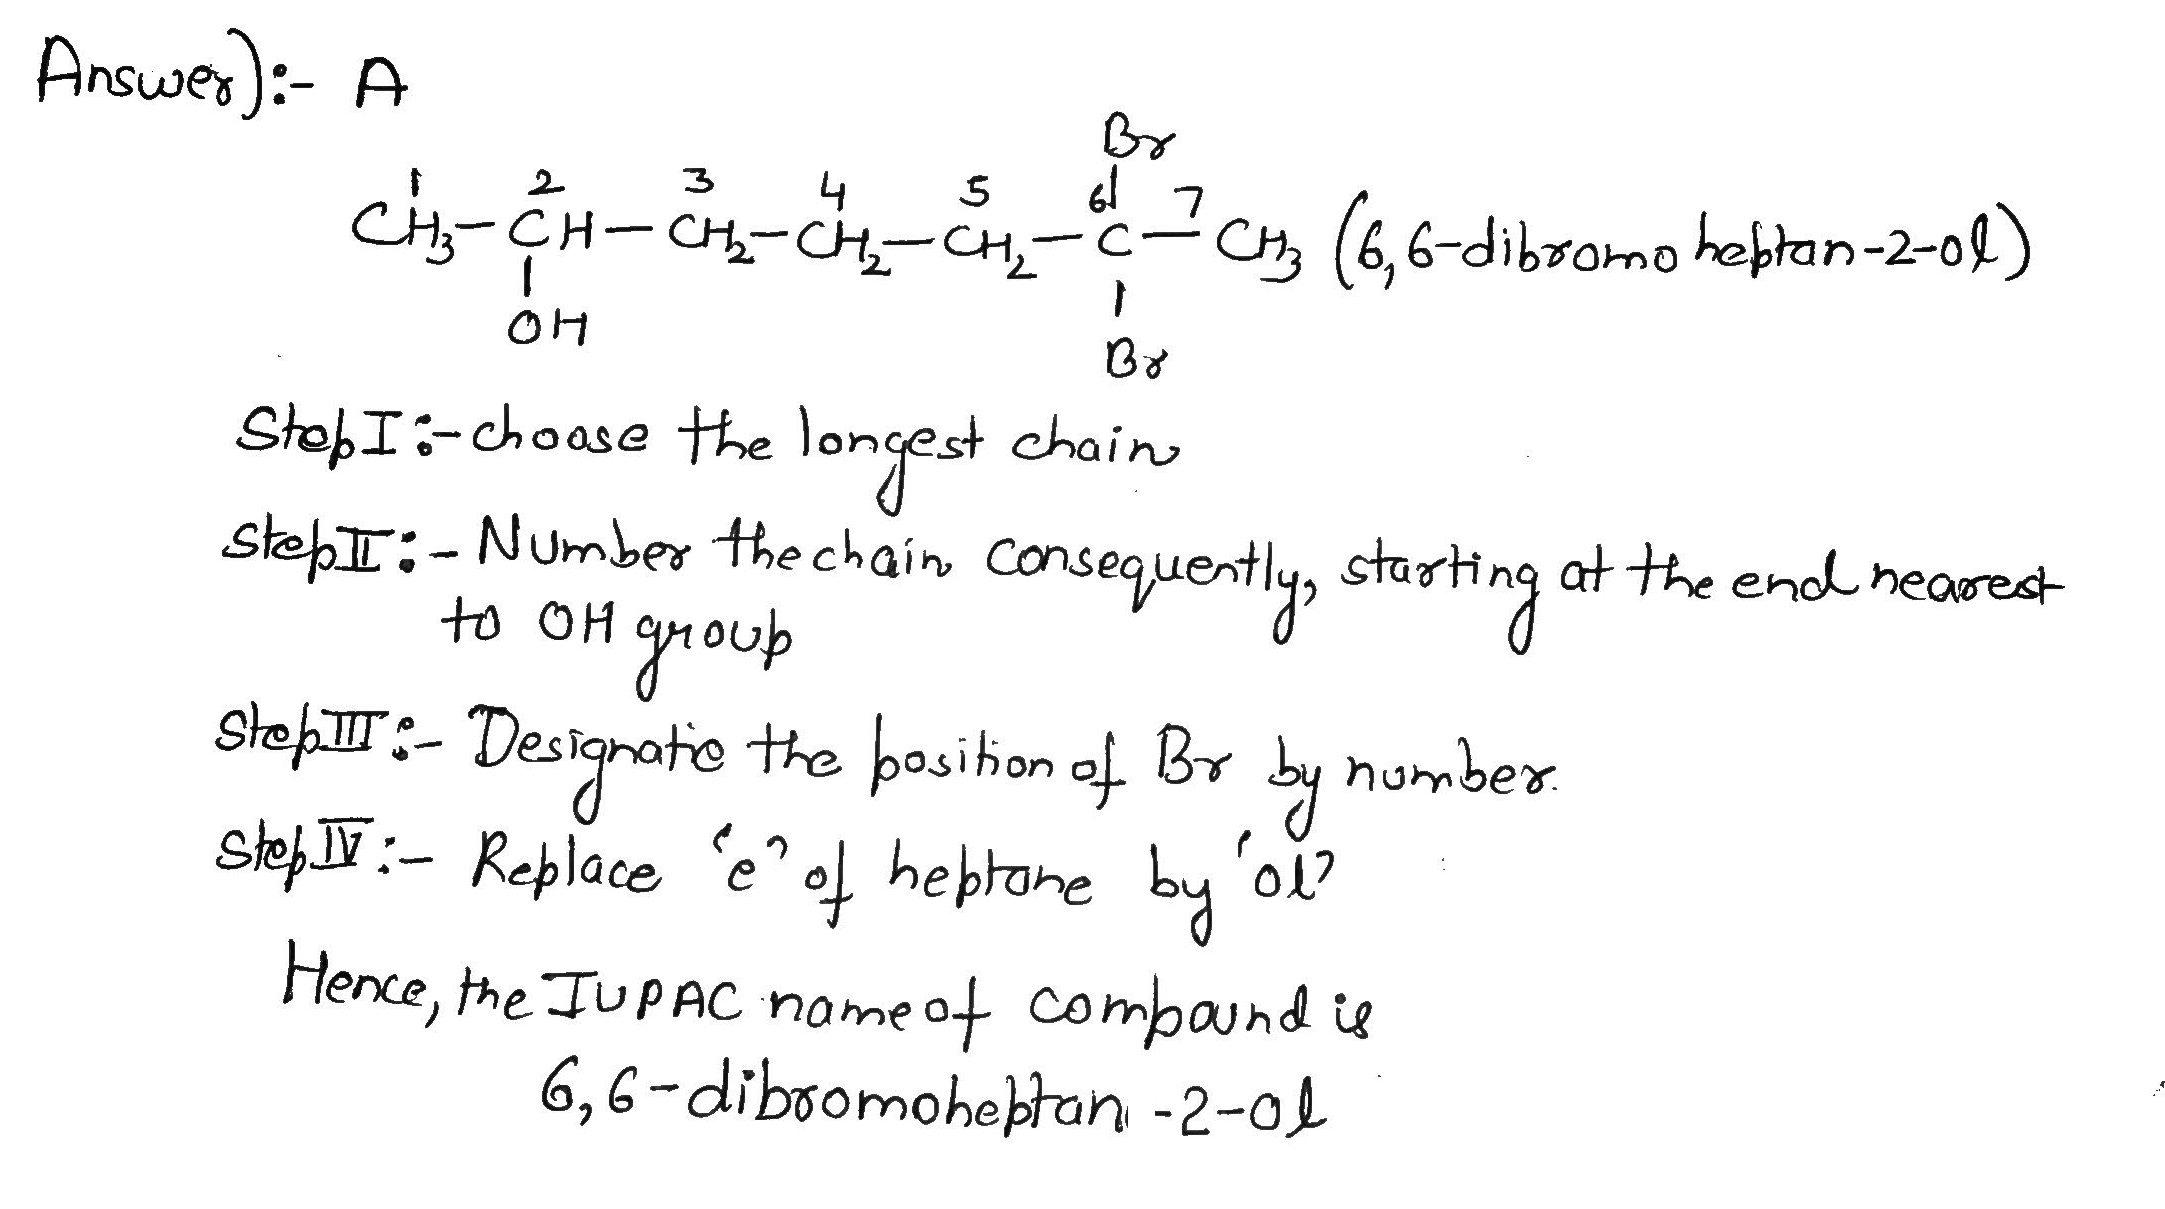 Answer):- A
Br
1 2 3 4 5 6 7
CH₃-CH-CH₂-CH₂-CH₂-C-CH₃ (6,6-dibromo heptan-2-ol)
OH
Br
Step I:- choose the longest chain
Step II:- Number the chain consequently, starting at the end nearest
to OH group
Step III:- Designate the position of Br by number.
Step IV:- Replace 'e' of heptane by 'ol'
Hence, the IUPAC name of compound is
6,6-dibromoheptan-2-ol